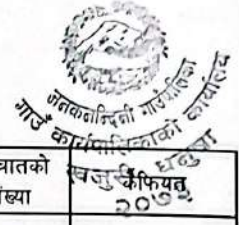 जनकनन्दिनी गाउँपालिका
गाउँ कार्यपालिकाको कार्यालय
खजुरी धनुषा
२०७३
चातको
ंख्या
कैफियत